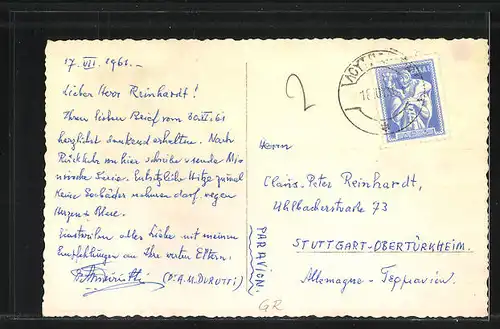 17. VII. 1961.-
Lieber Herr Reinhardt!
Ihren lieben Brief vom 30.VI.61
herzlichst dankend erhalten. Nach
Rückkehr von hier schreibe u sende
Serie. Entsetzliche Hitze zumal
keine Seebäder nehmen darf, wegen
Herzens
Einstweilen alles Liebe mit meinen
Empfehlungen an Ihre werten Eltern.
(Dr. A. M. DURUTTI)
2
Herrn
Claus-Peter Reinhardt,
Uhlbacherstraße 73
STUTTGART-OBERTÜRKHEIM.
Allemagne - Γερμανίαν.
PAR AVION.
GR